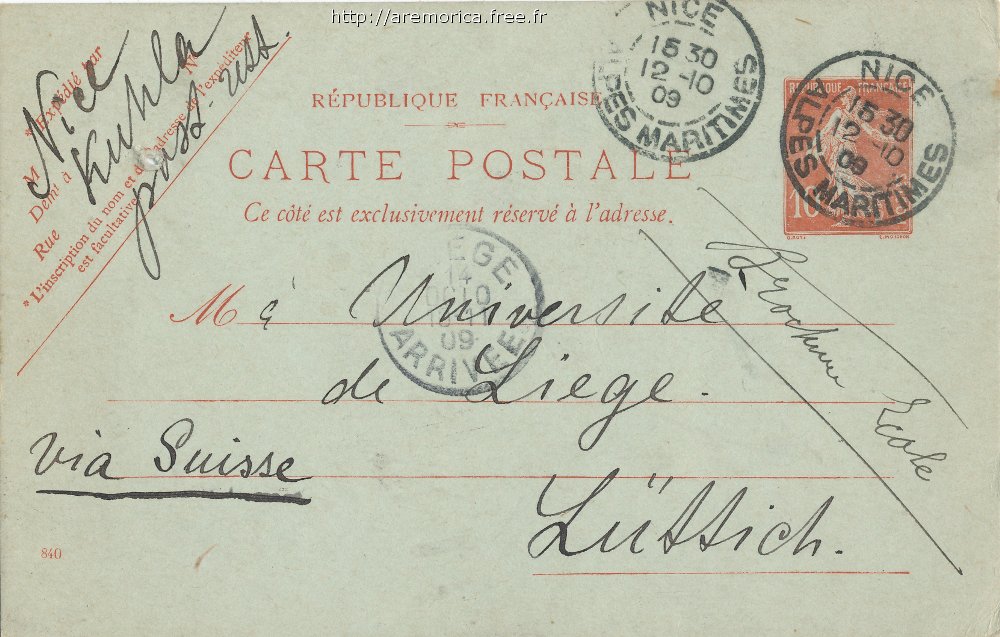 http://aremorica.free.fr
* Expédié par
M
Demt à
Rue
No
* L'inscription du nom et de l'adresse de l'expéditeur
est facultative.
Nice
Kuhla
post. rest.
RÉPUBLIQUE FRANÇAISE
CARTE POSTALE
Ce côté est exclusivement réservé à l'adresse.
NICE
15 30
12 -10
09
ALPES MARITIMES
RÉPUBLIQUE FRANÇAISE
10
NICE
15 30
12 -10
09
ALPES MARITIMES
LIEGE
14
OCTO
09
ARRIVEE
M à Université
de Liege.
via Suisse
Lüttich.
Brochure Ecole
840